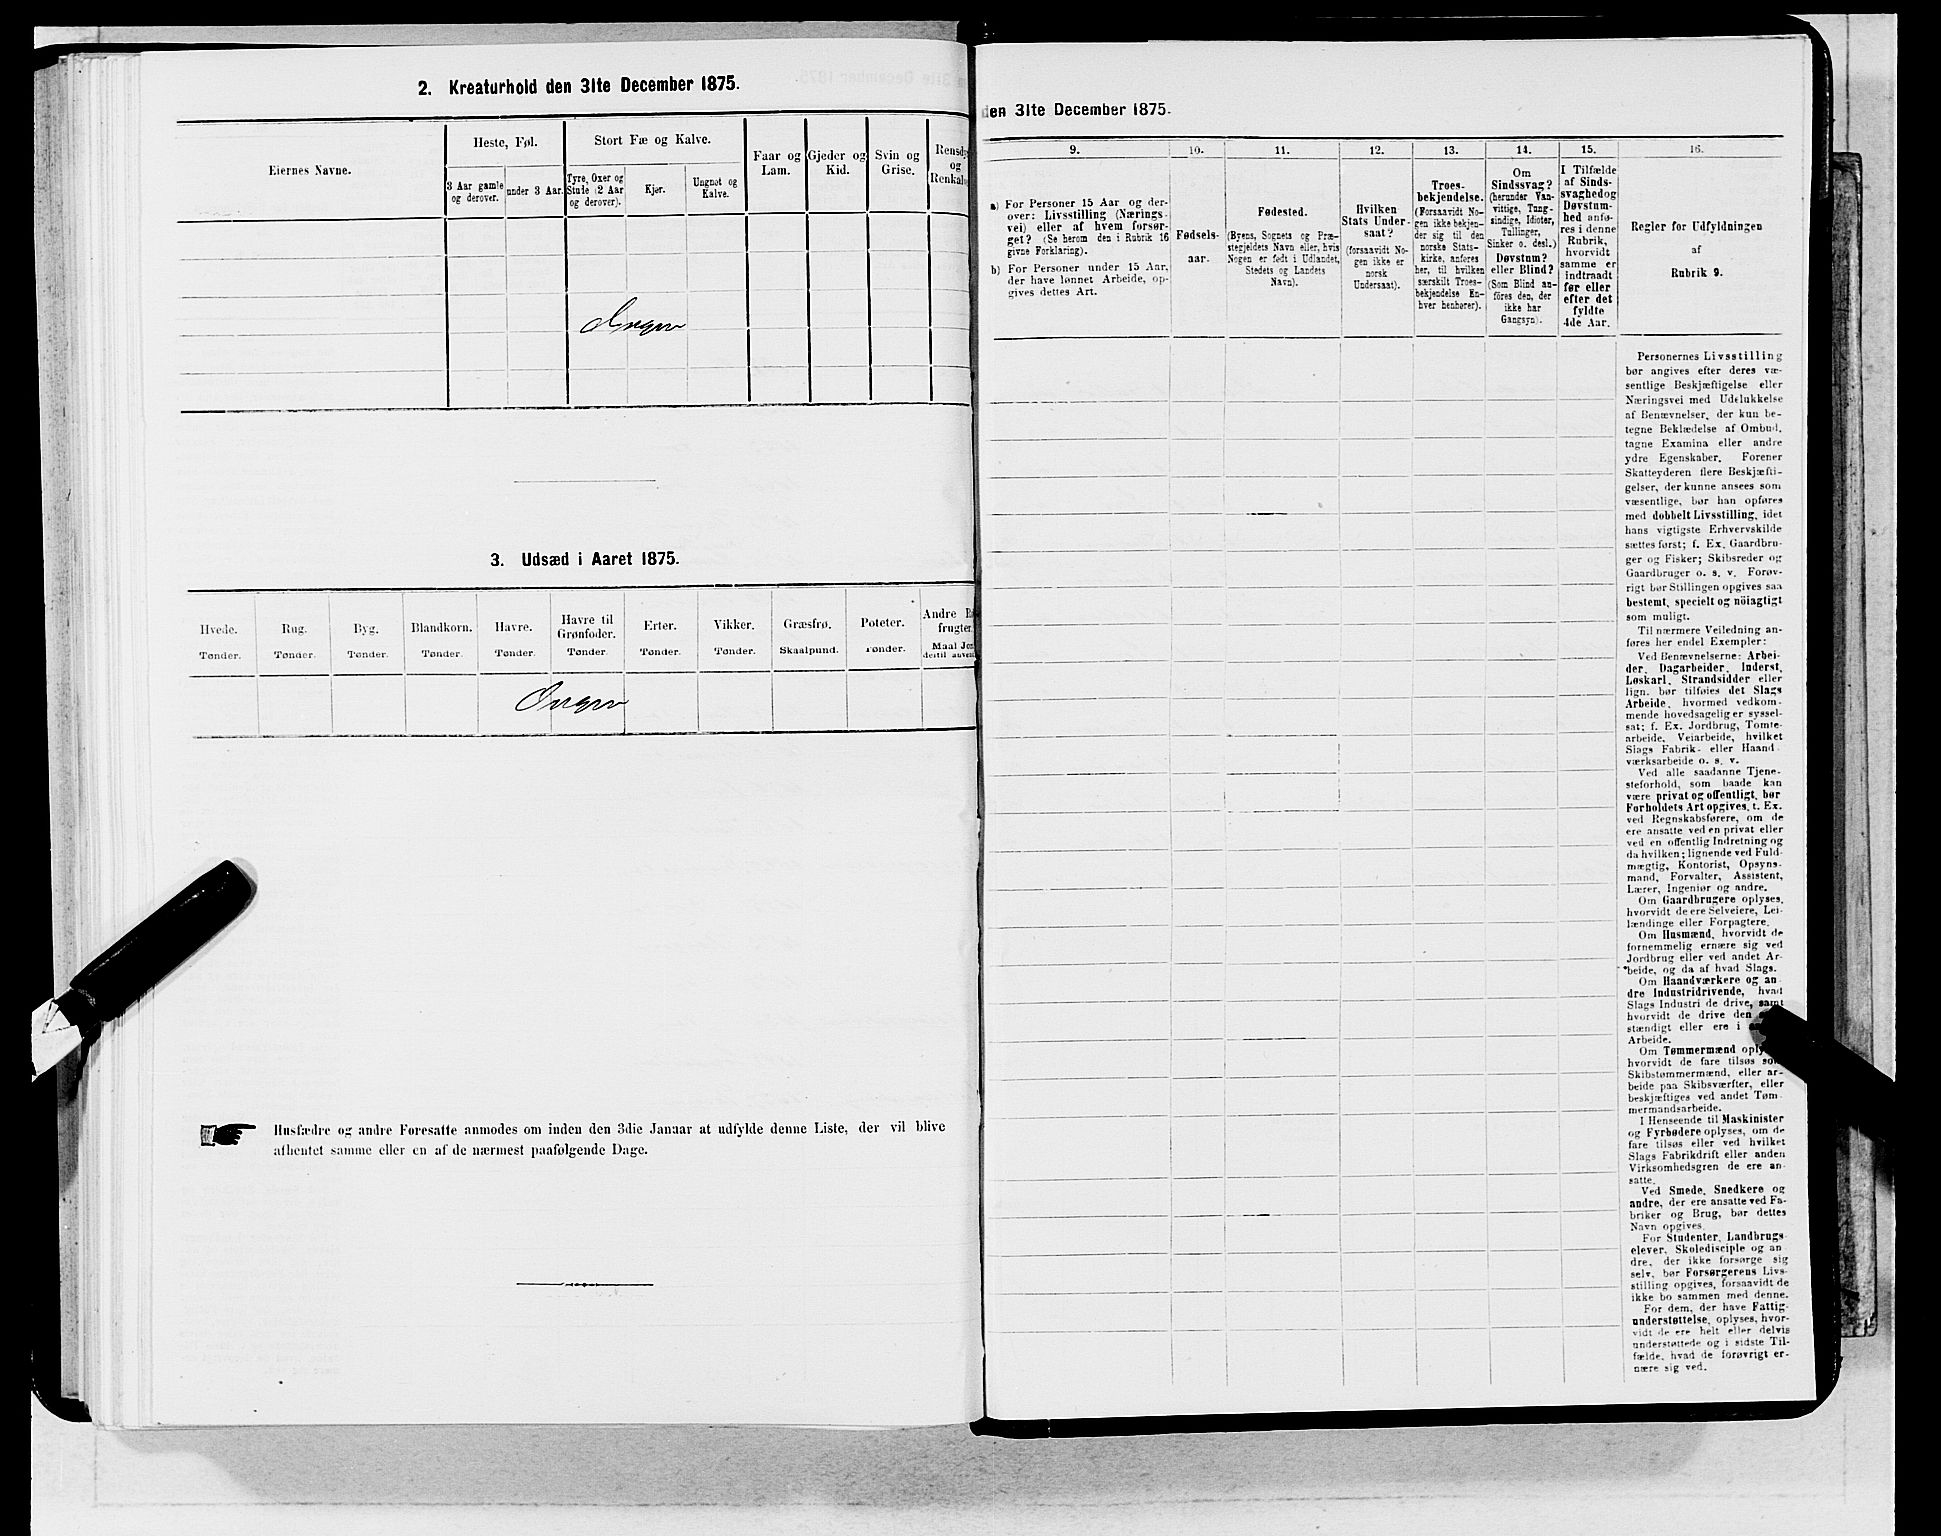 2. Kreaturhold den 31te December 1875.
Eiernes Navne.
Heste, Føl.
3 Aar gamle
og derover.
under 3 Aar.
Stort Fæ og Kalve.
Tyre, Oxer og
Stude (2 Aar
og derover).
Kjør.
Ungnøt og
Kalve.
Faar og
Lam.
Gjeder og
Kid.
Svin og
Grise.
Rensdy
og
Renkal
Ingen
3. Udsæd i Aaret 1875.
Hvede.
Tønder.
Rug.
Tønder.
Byg.
Tønder.
Blandkorn.
Tønder.
Havre.
Tønder.
Havre til
Grønfoder.
Tønder.
Erter.
Tønder.
Vikker.
Tønder.
Græsfrø.
Skaalpund.
Poteter.
Tønder.
Andre
frugter.
Maal Jor
dertil anven
Ingen
Husfædre og andre Foresatte anmodes om inden den 3die Januar at udfylde denne Liste, der vil blive
afhentet samme eller en af de nærmest paafølgende Dage.
den 31te December 1875.
9.
a) For Personer 15 Aar og der-
over: Livsstilling (Nærings-
vei) eller af hvem forsør-
get? (Se herom den i Rubrik 16
givne Forklaring).
b) For Personer under 15 Aar,
der have lønnet Arbeide, op-
gives dettes Art.
10.
Fødsels-
aar.
11.
Fødested.
(Byens, Sognets og Præ-
stegjeldets Navn eller, hvis
Nogen er født i Udlandet,
Stedets og Landets
Navn).
12.
Hvilken
Stats Under-
saat?
(forsaavidt No-
gen ikke er
norsk
Undersaat).
13.
Troes-
bekjendelse.
(Forsaavidt No-
gen ikke bekjen-
der sig til den
norske Stats-
kirke, anføres
her, til hvilken
særskilt Troes-
bekjendelse En-
hver henhører).
14.
Om
Sindssvag?
(herunder Van-
vittige, Tung-
sindige, Idioter,
Tullinger,
Sinker o. desl.)
Døvstum?
eller Blind?
(Som Blind an-
föres den, der
ikke har
Gangsyn).
15.
I Tilfælde
af Sinds-
svaghedog
Døvstum-
hed anfø-
res i denne
Rubrik,
hvorvidt
samme er
indtraadt
før eller
efter det
fyldte
4de Aar.
16.
Regler for Udfyldningen
af
Rubrik 9.
Personernes Livsstilling
bør angives efter deres væ-
sentlige Beskjæftigelse eller
Næringsvei med Udelukkelse
af Benævnelser, der kun be-
tegne Beklædelse af Ombud,
tagne Examina eller andre
ydre Egenskaber. Forener
Skatteyderen flere Beskjæfti-
gelser, der kunne ansees som
væsentlige, bør han opføres
med dobbelt Livsstilling, idet
hans vigtigste Erhvervskilde
sættes først; f. Ex. Gaardbru-
ger og Fisker; Skibsreder og
Gaardbruger o. s. v. Forøv-
rigt bør Stillingen opgives saa
bestemt, specielt og nöiagtigt
som muligt.
Til nærmere Veiledning an-
føres her endel Exempler:
Ved Benævnelserne: Arbei-
der, Dagarbeider, Inderst,
Løskarl, Strandsidder eller
lign. bør tilføies det Slags
Arbeide, hvormed vedkom-
mende hovedsagelig er syssel-
sat; f. Ex. Jordbrug, Tomte-
arbeide, Veiarbeide, hvilket
Slags Fabrik- eller Haand-
værksarbeide o. s. v.
Ved alle saadanne Tjene-
steforhold, som baade kan
være privat og offentligt, bør
Forholdets Art opgives, t. Ex.
ved Regnskabsførere, om de
ere ansatte ved en privat eller
ved en offentlig Indretning og
da hvilken; lignende ved Fuld-
mægtig, Kontorist, Opsyns-
mand, Forvalter, Assistent,
Lærer, Ingeniør og andre.
Om Gaardbrugere oplyses,
hvorvidt de ere Selveiere, Lei-
lændinge eller Forpagtere.
Om Husmænd, hvorvidt de
fornemmelig ernære sig ved
Jordbrug eller ved andet Ar-
beide, og da af hvad Slags.
Om Haandværkere og an-
dre Industridrivende, hvad
Slags Industri de drive, samt
hvorvidt de drive den
stændigt eller ere i
Arbeide.
Om Tømmermænd oply
hvorvidt de fare tilsøs som
Skibstømmermænd, eller ar-
beide paa Skibsværfter, eller
beskjæftiges ved andet Tøm-
mermandsarbeide.
I Henseende til Maskinister
og Fyrbødere oplyses, om de
fare tilsøs eller ved hvilket
Slags Fabrikdrift eller anden
Virksomhedsgren de ere an-
satte.
Ved Smede, Snedkere og
andre, der ere ansatte ved Fa-
briker og Brug, bør dettes
Navn opgives.
For Studenter, Landbrugs-
elever, Skoledisciple og an-
dre, der ikke forsørge sig
selv, bør Forsørgerens Livs-
stilling opgives, forsaavidt de
ikke bo sammen med denne.
For dem, der have Fattig-
understøttelse, oplyses, hvor-
vidt de ere helt eller delvis
understøttede og i sidste Til-
fælde, hvad de forøvrigt er-
nære sig ved.